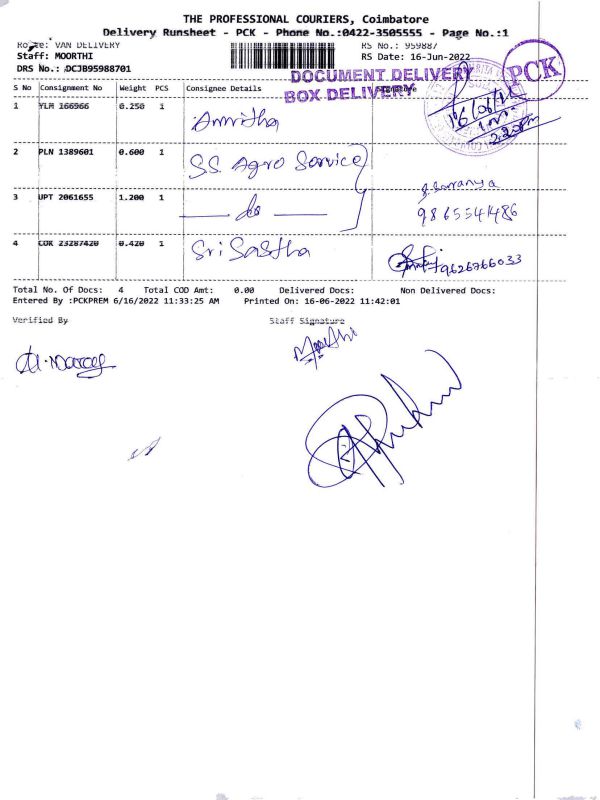 THE PROFESSIONAL COURIERS, Coimbatore
Delivery Runsheet - PCK - Phone No.:0422-3505555 - Page No.:1
Route: VAN DELIVERY RS No.: 959887
Staff: MOORTHI RS Date: 16-Jun-2022
DRS No.: DCJB95988701
DOCUMENT DELIVERY
BOX DELIVERY
PCK
S No Consignment No Weight PCS Consignee Details Signature
1 YLM 166966 0.250 1 Amritha
16/06/22
2.20pm
2 PLN 1389601 0.600 1 SS Agro Service
3 UPT 2061655 1.200 1 — do — S. Saranya
9865541486
4 COK 23287420 0.420 1 Sri Sastha 9626766033
Total No. Of Docs: 4 Total COD Amt: 0.00 Delivered Docs: Non Delivered Docs:
Entered By :PCKPREM 6/16/2022 11:33:25 AM Printed On: 16-06-2022 11:42:01
Verified By Staff Signature
Moorthi